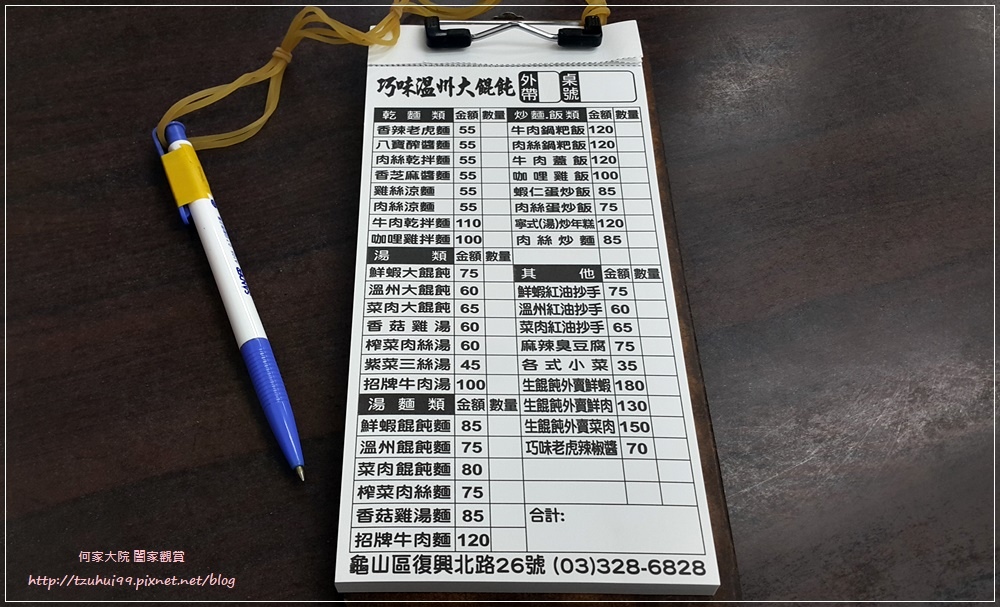 巧味溫州大餛飩 外帶 桌號
乾麵類 金額 數量
香辣老虎麵 55
八寶醡醬麵 55
肉絲乾拌麵 55
香芝麻醬麵 55
雞絲涼麵 55
肉絲涼麵 55
牛肉乾拌麵 110
咖哩雞拌麵 100
湯類 金額 數量
鮮蝦大餛飩 75
溫州大餛飩 60
菜肉大餛飩 65
香菇雞湯 60
榨菜肉絲湯 60
紫菜三絲湯 45
招牌牛肉湯 100
湯麵類 金額 數量
鮮蝦餛飩麵 85
溫州餛飩麵 75
菜肉餛飩麵 80
榨菜肉絲麵 75
香菇雞湯麵 85
招牌牛肉麵 120
炒麵.飯類 金額 數量
牛肉鍋粑飯 120
肉絲鍋粑飯 120
牛肉蓋飯 120
咖哩雞飯 100
蝦仁蛋炒飯 85
肉絲蛋炒飯 75
寧式(湯)炒年糕 120
肉絲炒麵 85
其他 金額 數量
鮮蝦紅油抄手 75
溫州紅油抄手 60
菜肉紅油抄手 65
麻辣臭豆腐 75
各式小菜 35
生餛飩外賣鮮蝦 180
生餛飩外賣鮮肉 130
生餛飩外賣菜肉 150
巧味老虎辣椒醬 70
合計:
龜山區復興北路26號 (03)328-6828
何家大院 闔家觀賞
http://tzuhui99.pixnet.net/blog